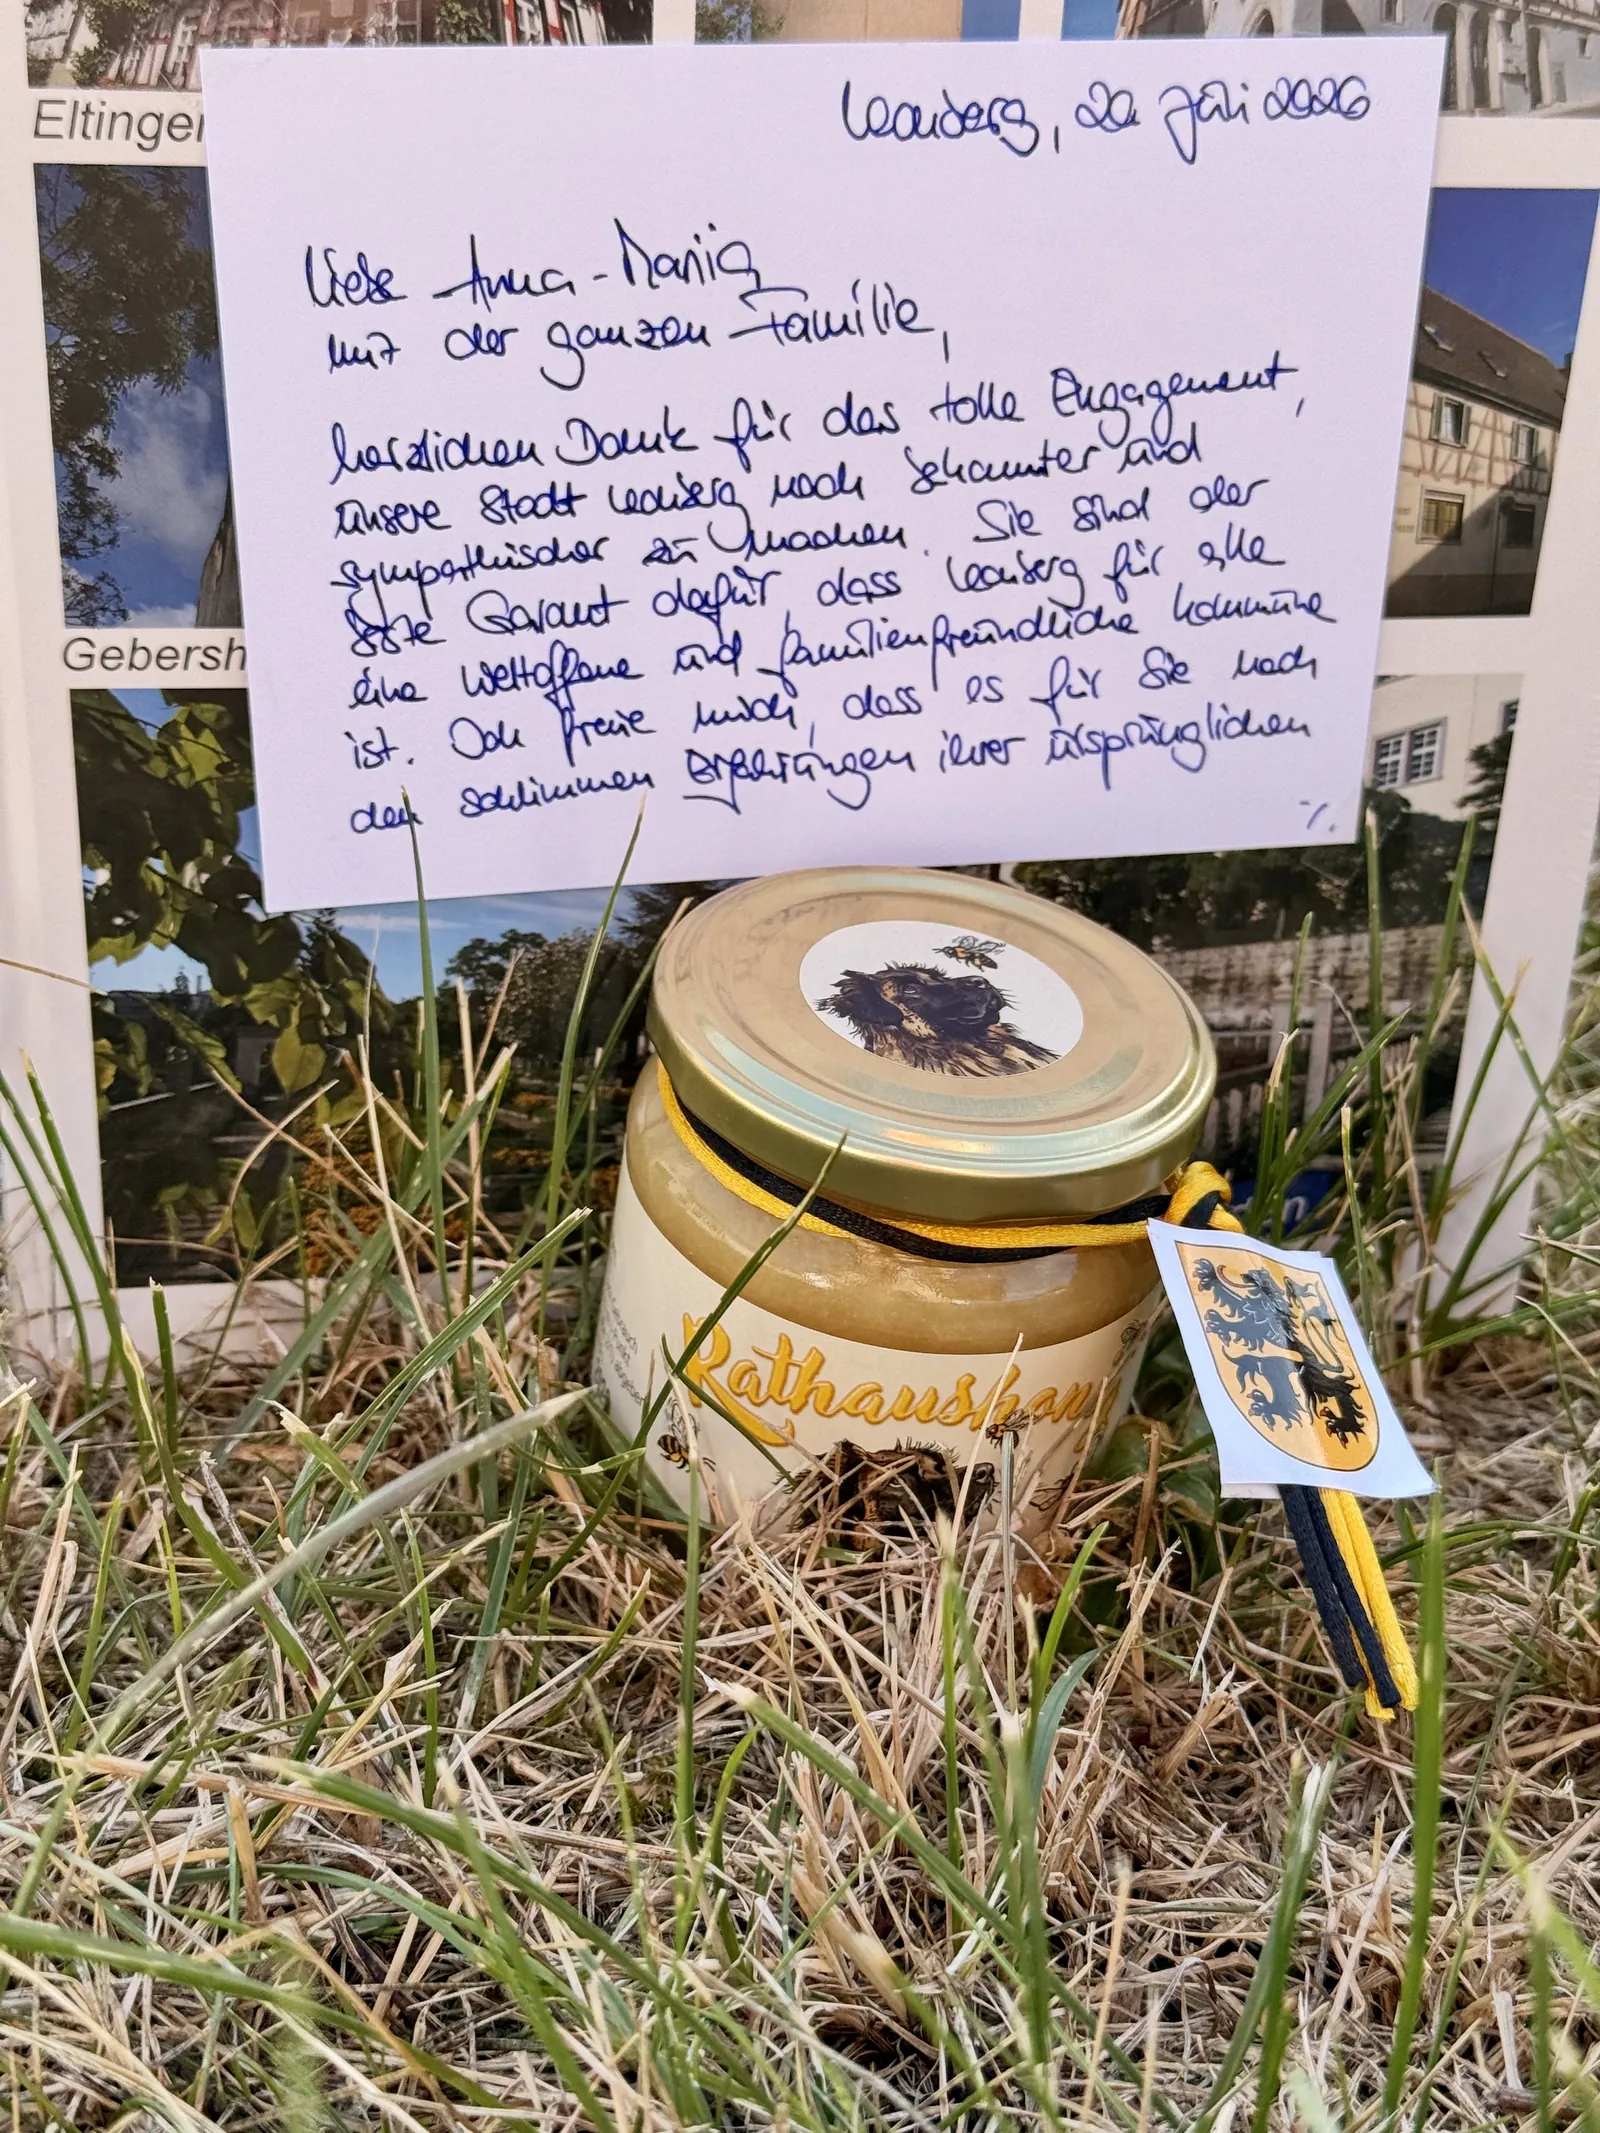 Eltinger
Leonberg, 20. Juli 2026
Liebe Anna-Maria
mit der ganzen Familie,
herzlichen Dank für das tolle Engagement,
unsere Stadt Leonberg noch bekannter und
sympathischer zu machen. Sie sind der
beste Garant dafür, dass Leonberg für alle
eine weltoffene und familienfreundliche Kommune
ist. Ich freue mich, dass es für Sie nach
den schlimmen Erfahrungen ihrer ursprünglichen
./.
Gebersh
Rathaushonig